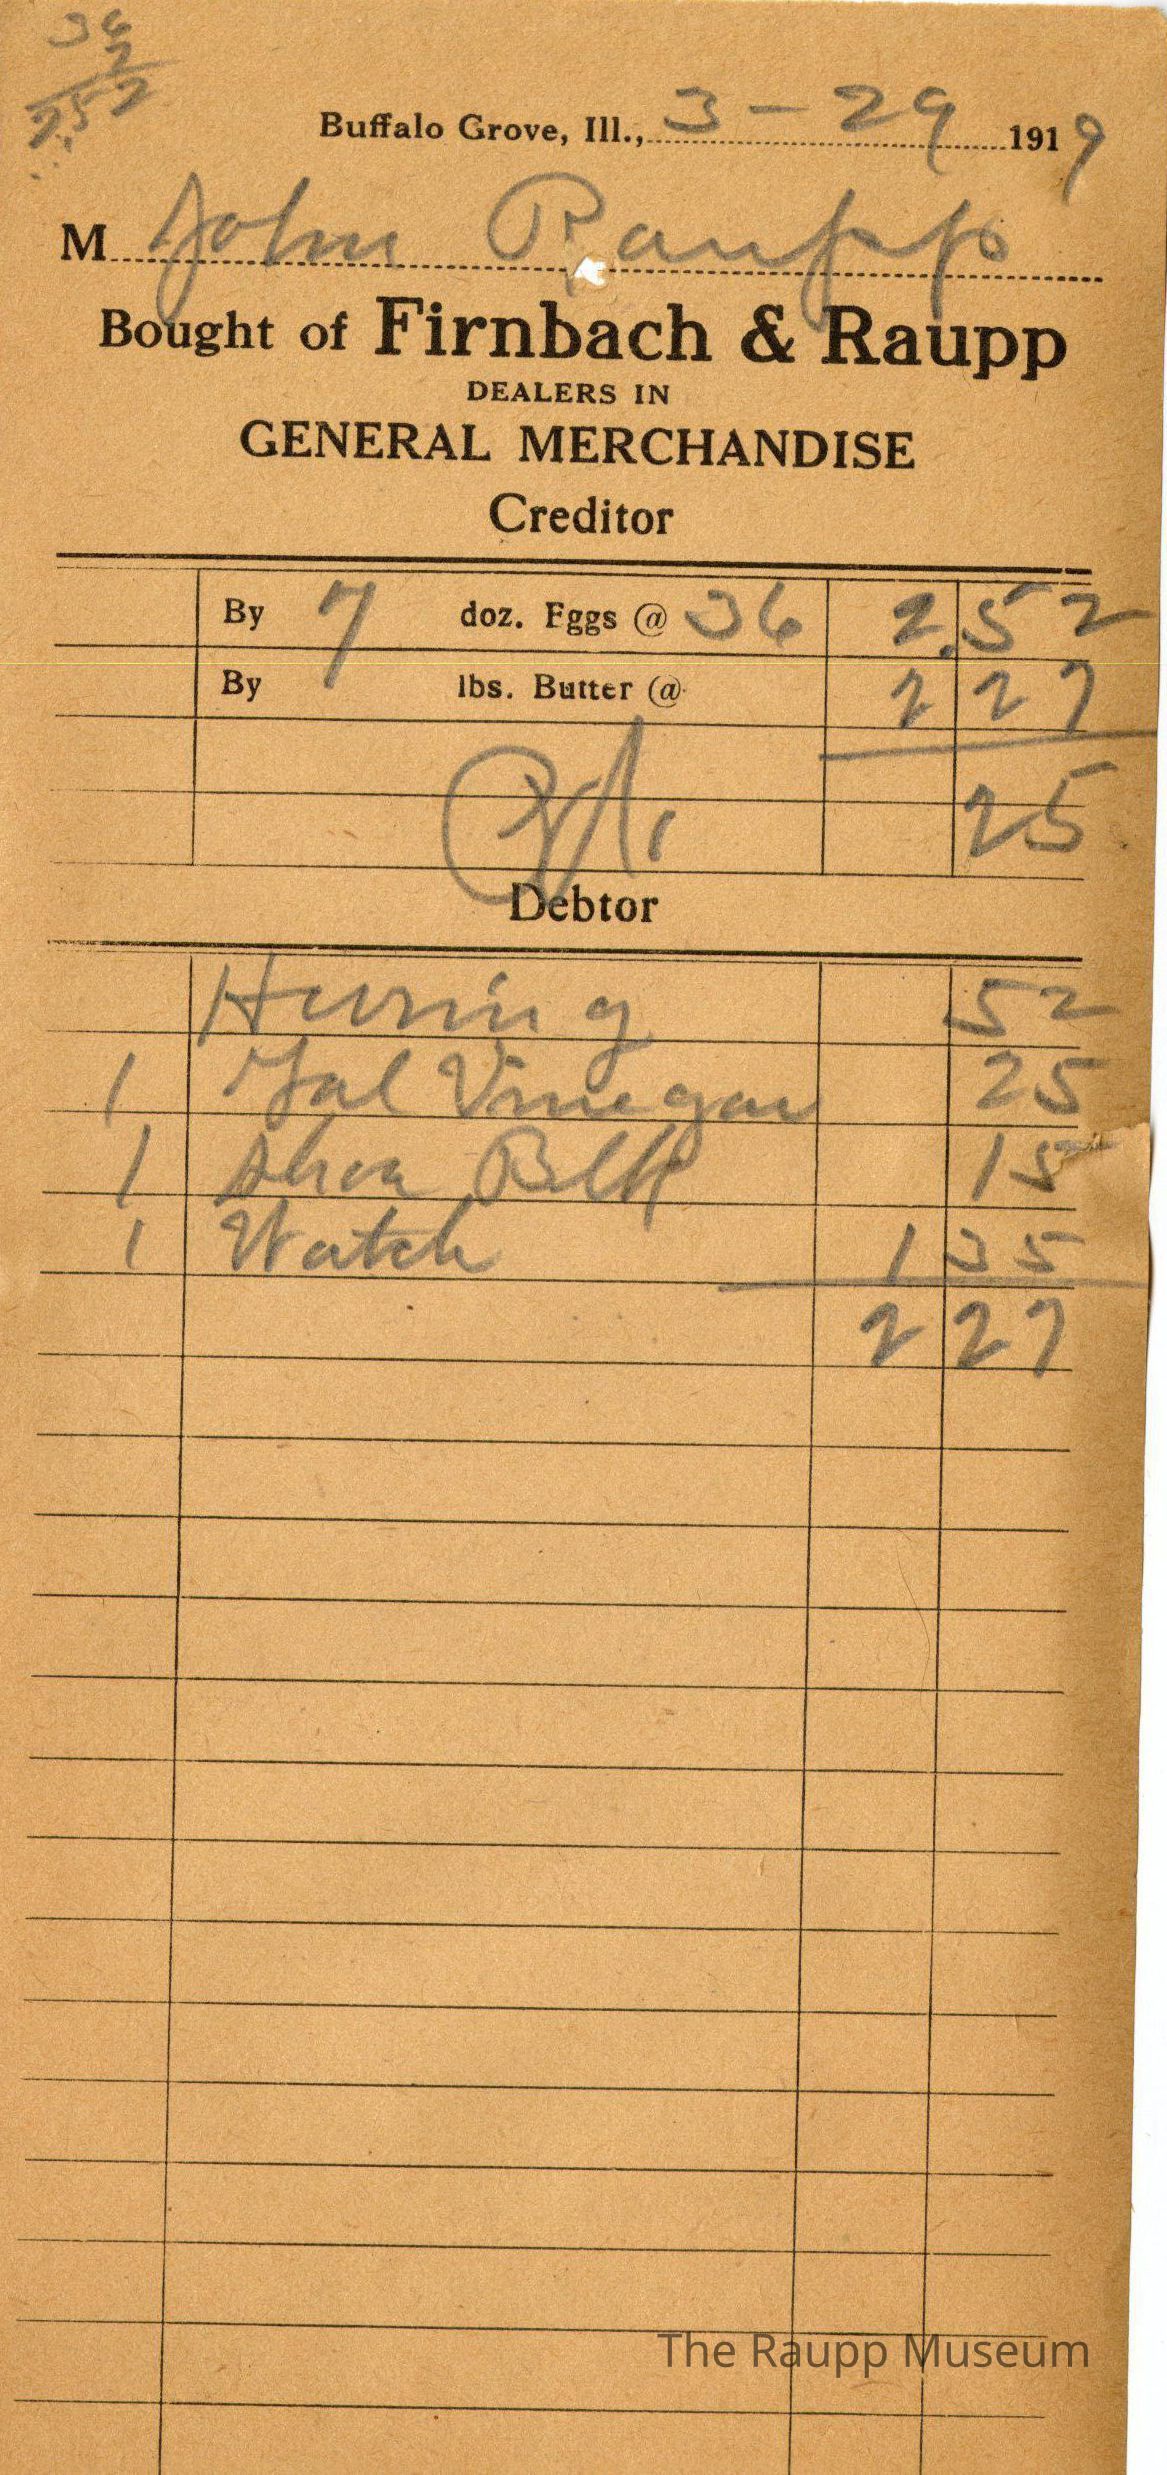 36
7
2.52
Buffalo Grove, Ill., 3 - 29 1919
M John Raupp
Bought of Firnbach & Raupp
DEALERS IN
GENERAL MERCHANDISE
Creditor
By 7 doz. Eggs @ 36 2.52
By lbs. Butter @ 2 27
25
Debtor
Herring 52
1 Gal Vinegar 25
1 Shoe Blk 15
1 Watch 1 35
2 27
The Raupp Museum